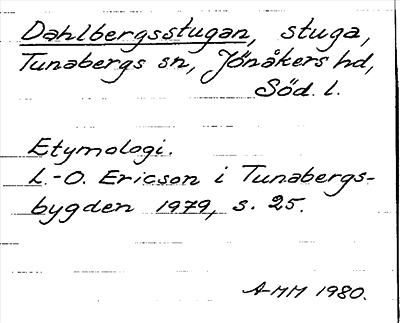 Dahlbergsstugan, stuga,
Tunabergs sn, Jönåkers hd,
Söd. l.
Etymologi.
L.-O. Ericson i Tunabergs-
bygden 1979, s. 25.
A-MM 1980.